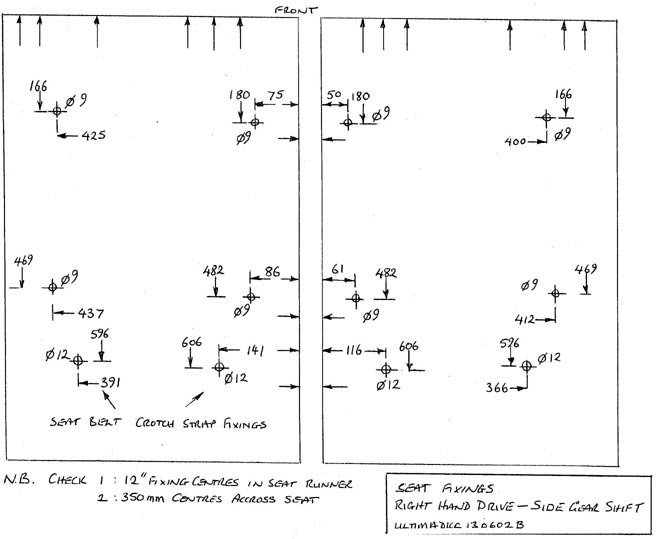 FRONT
166 Ø9 180 75 50 180 Ø9 166
Ø9 Ø9
425 400
469 Ø9 482 86 61 482 Ø9 469
Ø9 Ø9
437 412
596 606 141 116 606 596
Ø12 Ø12 Ø12 Ø12
391 366
SEAT BELT CROTCH STRAP FIXINGS
N.B. CHECK 1 : 12" FIXING CENTRES IN SEAT RUNNER
2 : 350mm CENTRES ACCROSS SEAT
SEAT FIXINGS
RIGHT HAND DRIVE – SIDE GEAR SHIFT
ULTIMADICC 130602B